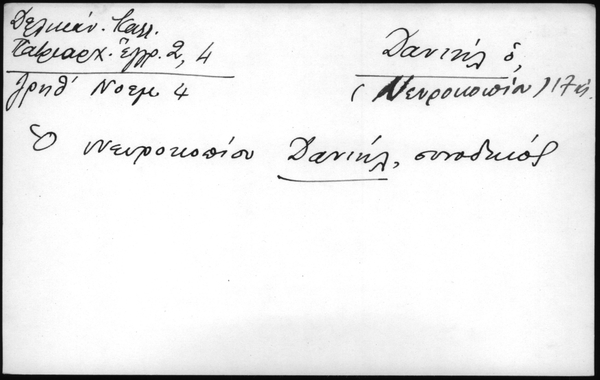 Δελικάν. Καλλ.
Πατριαρχ. Ἔγγρ. 2, 4
͵αχηθʹ Νοεμ 4
Δανιήλ ὁ,
(Νευροκοπίου) 17 αἰ.
Ὁ Νευροκοπίου Δανιήλ, συνοδικός